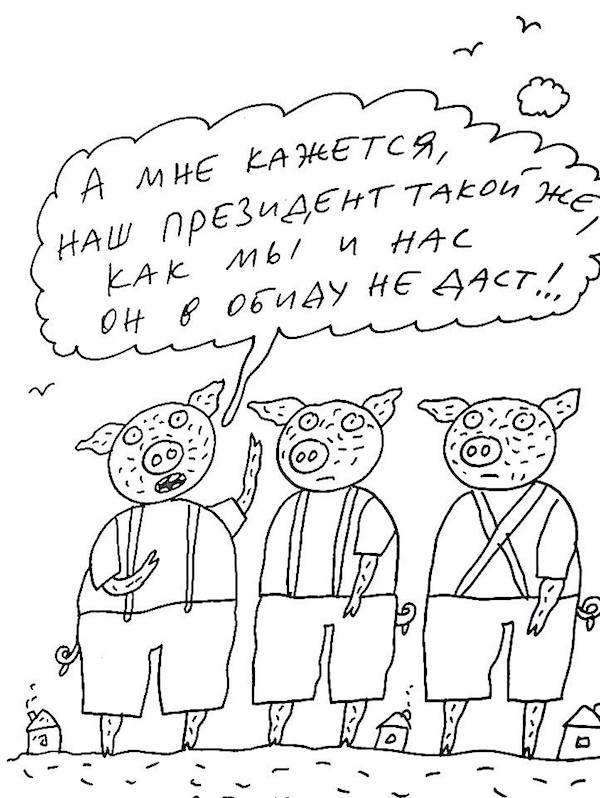 А МНЕ КАЖЕТСЯ,
НАШ ПРЕЗИДЕНТ ТАКОЙ ЖЕ,
КАК МЫ И НАС
ОН В ОБИДУ НЕ ДАСТ!..